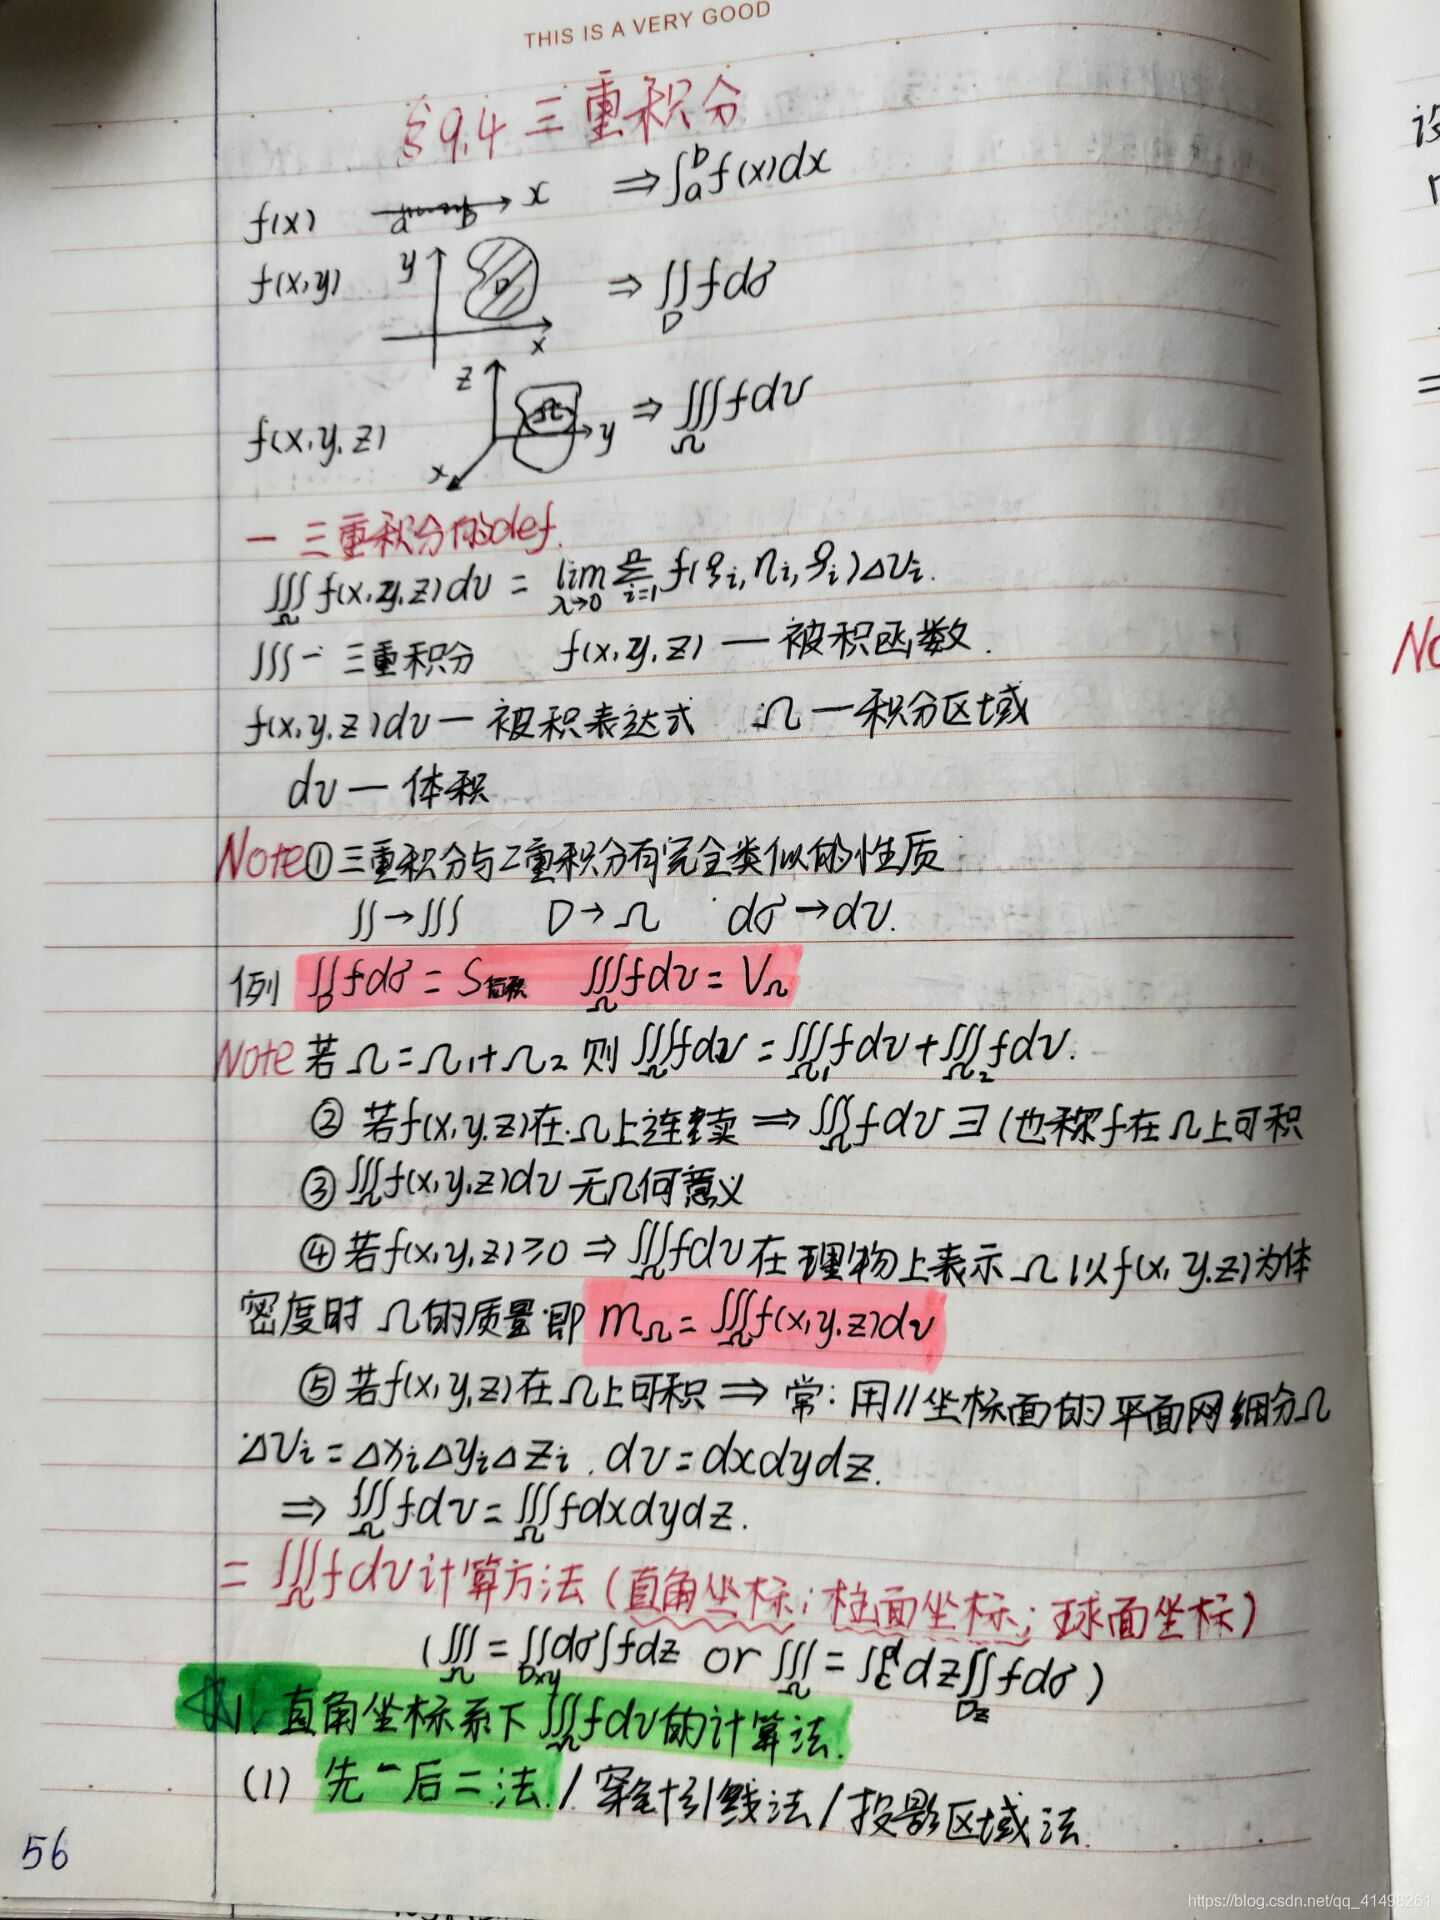 THIS IS A VERY GOOD
§9.4 三重积分
f(x) a b x ⇒∫ₐᵇf(x)dx
f(x,y) y D x ⇒ ∬_D f dσ
f(x,y,z) z Ω y x ⇒ ∭_Ω f dv
一 三重积分的def.
∭_Ω f(x,y,z)dv = lim_{λ→0} Σ_{i=1}^n f(ξi,ηi,ζi)Δvi.
∭— 三重积分 f(x,y,z) — 被积函数.
f(x,y,z)dv — 被积表达式 Ω — 积分区域
dv — 体积
Note①三重积分与二重积分有完全类似的性质
∬→∭ D→Ω dσ→dv.
例 ∬_D f dσ = S面积 ∭_Ω f dv = V_Ω
Note 若Ω=Ω₁+Ω₂ 则 ∭_Ω f dv = ∭_Ω₁ f dv + ∭_Ω₂ f dv.
② 若f(x,y,z)在Ω上连续 ⇒ ∭_Ω f dv ∃ (也称f在Ω上可积
③ ∭_Ω f(x,y,z)dv 无几何意义
④ 若f(x,y,z)≥0 ⇒ ∭_Ω f dv 在理物上表示Ω以f(x,y,z)为体
密度时 Ω的质量.即 m_Ω = ∭_Ω f(x,y,z)dv
⑤ 若f(x,y,z)在Ω上可积 ⇒ 常: 用//坐标面的平面网细分Ω
Δvi = ΔxiΔyiΔzi. dv = dxdydz.
⇒ ∭_Ω f dv = ∭_Ω f dxdydz.
二 ∭_Ω f dv 计算方法 (直角坐标; 柱面坐标; 球面坐标)
(∭_Ω = ∬_Dxy dσ∫f dz or ∭_Ω = ∫_c^d dz∬_Dz f dσ)
1. 直角坐标系下 ∭_Ω f dv 的计算法.
(1) 先一后二法. / 穿针引线法 / 投影区域法.
56
设
No
https://blog.csdn.net/qq_41498261